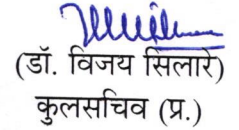 (डॉ. विजय सिलारे)
कुलसचिव (प्र.)